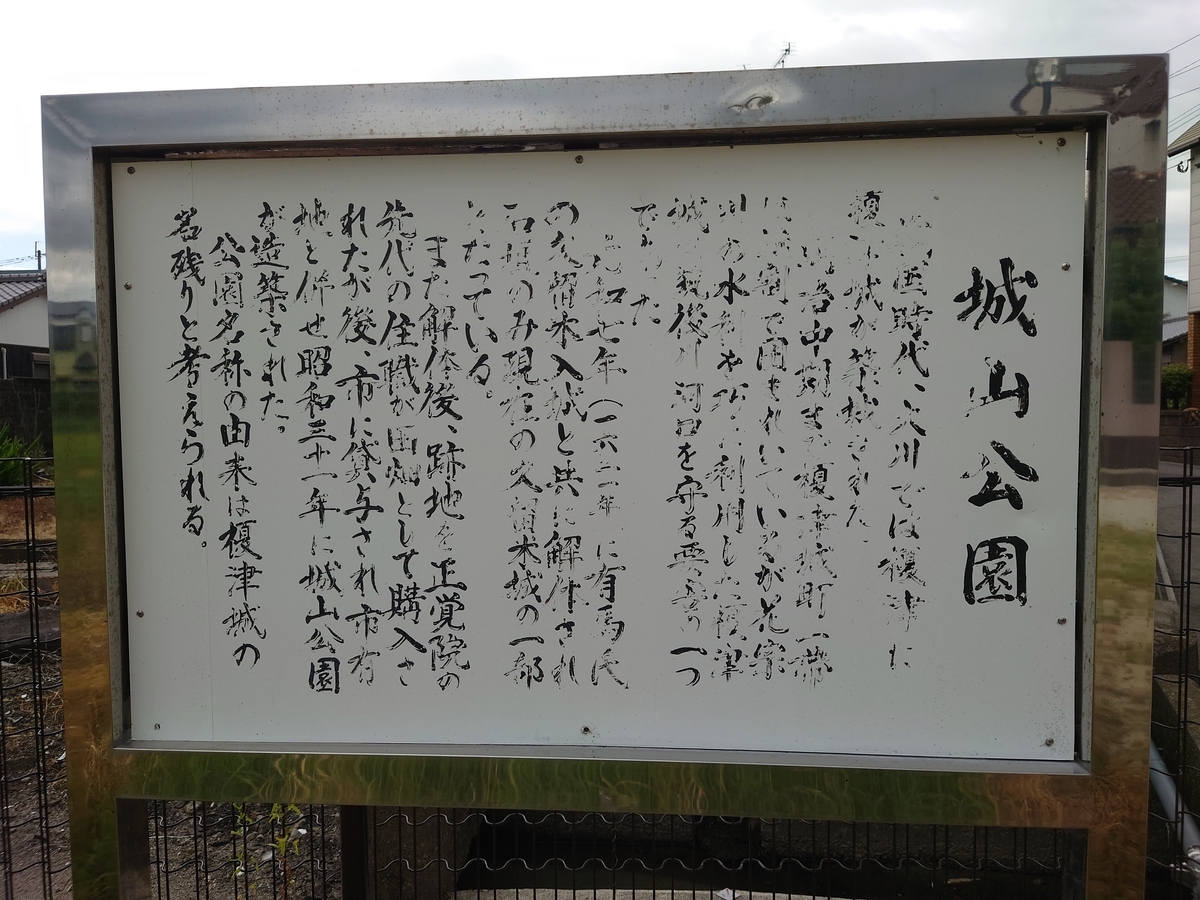 城山公園
戦国時代、大川では榎津に
榎津城が築城された
中期まで榎津城町一帯
割で囲まれていたが花宗
川の水利や巧に利用し榎津
城は筑後川河口を守る要害の一つ
であった
元和七年（一六二一年）に有馬氏
の久留米入城と共に解体され
石垣のみ現在の久留米城の一部
となっている。
また解体後、跡地を正覚院の
先代の住職が田畑として購入さ
れたが後、市に貸与され市有
地と併せ昭和三十一年に城山公園
が造築された。
公園名称の由来は榎津城の
名残りと考えられる。